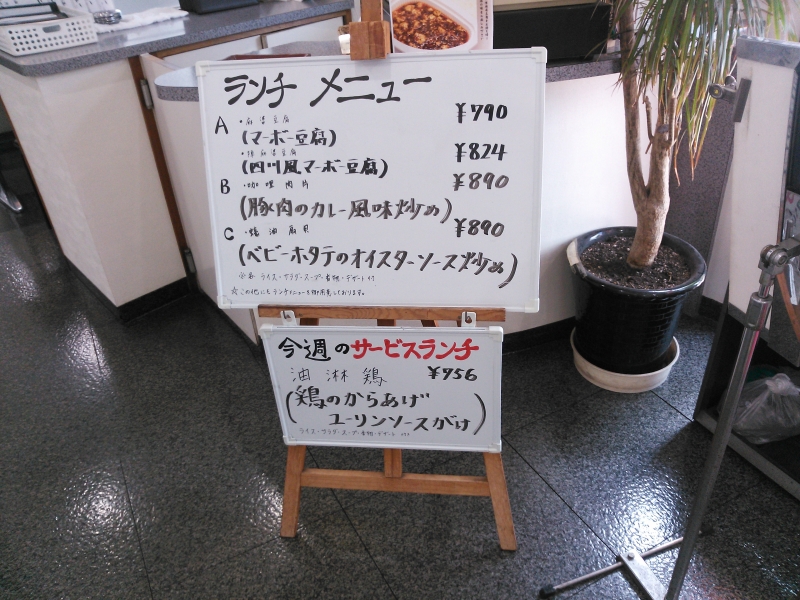 ランチ メニュー
A ・麻婆豆腐 ¥790
(マーボー豆腐)
・陳麻婆豆腐 ¥824
(四川風マーボー豆腐)
B ・咖喱肉片 ¥890
(豚肉のカレー風味炒め)
C ・蠔油扇貝 ¥890
(ベビーホタテのオイスターソース炒め)
ライス・サラダ・スープ・香物・デザート付
☆この他にもランチメニューを御用意しております。
今週のサービスランチ
油淋鶏 ¥756
(鶏のからあげ
ユーリンソースがけ)
ライス・サラダ・スープ・香物・デザート付